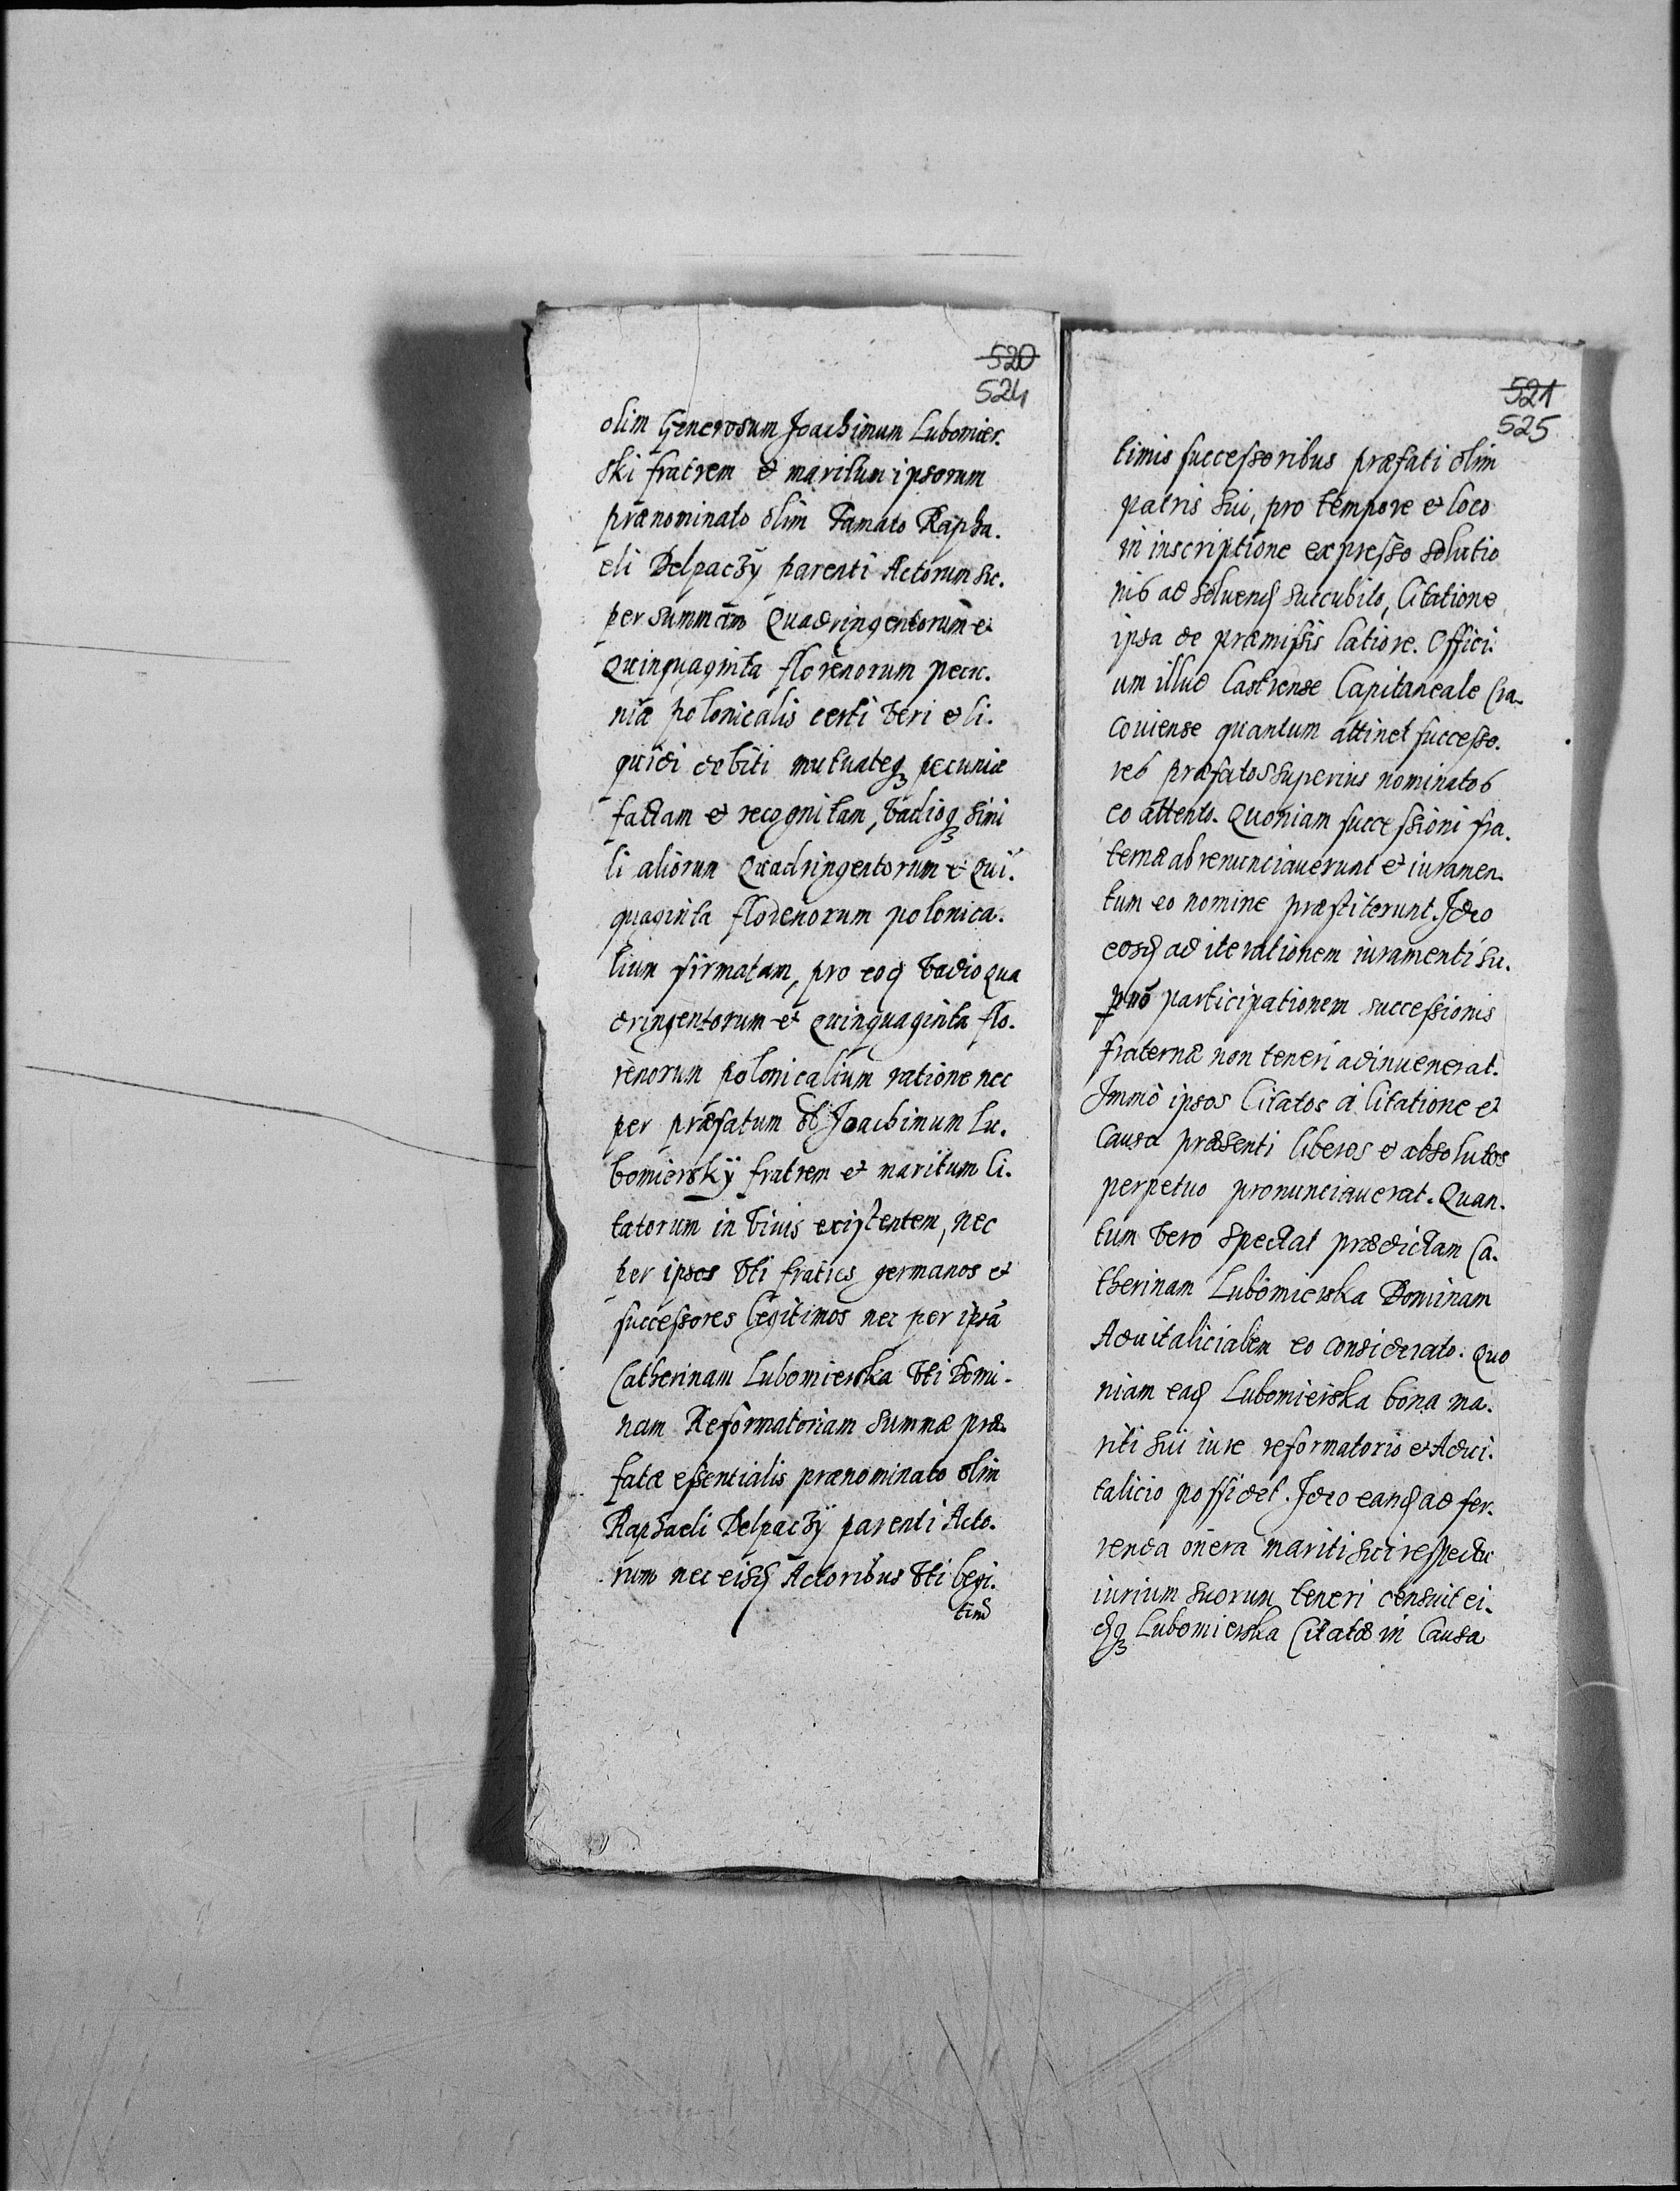 520
524
olim Generosum Joachimum Lubomier.
ski fratrem et maritum ipsorum
prænominato olim Famato Rapha.
eli Delpaczÿ parenti Actorum su.
per summam Quadringentorum et
Quinquaginta florenorum pecu.
niæ polonicalis certi veri et li.
quidi debiti mutuateq3 pecuniæ
factam et recognitam, vadioq3 simi
li aliorum Quadringentorum et Qui.
quaginta florenorum polonica.
lium firmatam, pro eoq vadio Qua
dringentorum et Quinquaginta flo.
renorum polonicalium ratione nec
per præfatum ol Joachimum Lu.
bomierskÿ fratrem et maritum Ci.
tatorum in vivis existentem, nec
per ipsos vti fratres germanos et
successores legitimos nec per ipsā
Catherinam Lubomierska vti Domi.
nam Reformatoriam summæ præ.
fatæ essentialis prænominato olim
Raphaeli Delpaczÿ parenti Acto.
rum nec eisd Actoribus vti legi.
timis
521
525
timis successoribus præfati olim
patris sui, pro tempore et loco
in inscriptione expresso solutio
nis ad solvend succubito, Citatione
ipsa de præmissis latiore. Offici.
um illud Castrense Capitaneale Cra.
coviense quantum attinet successo.
res præfatos superius nominatos
eo attento. Quoniam successioni fra.
ternæ abrenunciaverunt et iuramen.
tum eo nomine præstiterunt. Ideo
eosd ad iterationem iuramenti su.
per nō participationem successionis
fraternæ non teneri adinvenerat.
Immò ipsos Citatos à Citatione et
Causa præsenti liberos et absolutos
perpetuo pronunciaverat. Quan.
tum vero spectat prædictam Ca.
therinam Lubomierska Dominam
Advitalicialem eo considerato. Quo
niam ead Lubomierska bona ma.
riti sui iure reformatorio et Advi.
talicio possidet. Ideo eand ad fer.
renda onera mariti sui respectu
iurium suorum teneri censuit ei.
dq3 Lubomierska Citatæ in Causa